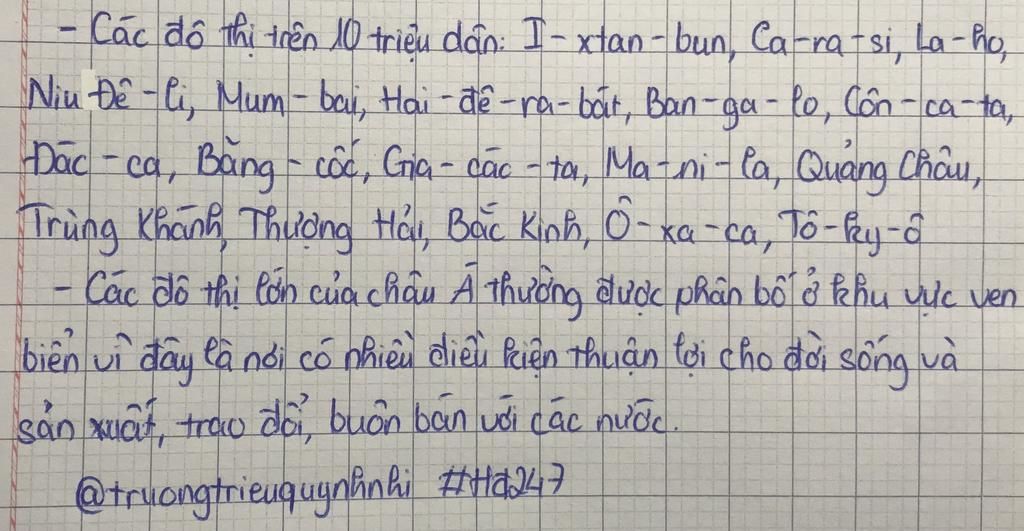 - Các đô thị trên 10 triệu dân: I-xtan-bun, Ca-ra-si, La-ho,
Niu Đê-li, Mum-bai, Hai-đê-ra-bát, Ban-ga-lo, Côn-ca-ta,
Đắc-ca, Băng-cốc, Gia-các-ta, Ma-ni-la, Quảng Châu,
Trùng Khánh, Thượng Hải, Bắc Kinh, Ô-xa-ca, Tô-ky-ô
- Các đô thị lớn của châu Á thường được phân bố ở khu vực ven
biển vì đây là nơi có nhiều điều kiện thuận lợi cho đời sống và
sản xuất, trao đổi, buôn bán với các nước.
@truongtrieuquynhnhi #Hd247